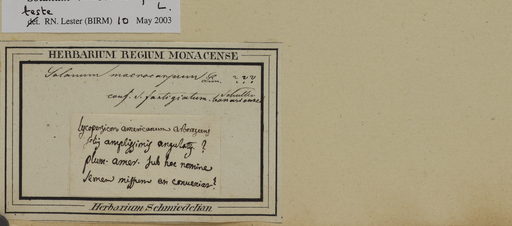 teste L.
det. RN. Lester (BIRM) 10 May 2003
HERBARIUM REGIUM MONACENSE
Solanum macrocarpum Lin. ???
conf. S. fastigiatum
Lycopersicon americanum
foliis amplissimis angulatis ?
plum. amer. sub hoc nomine
semen missum an convenies?
Herbarium Schmiedelian